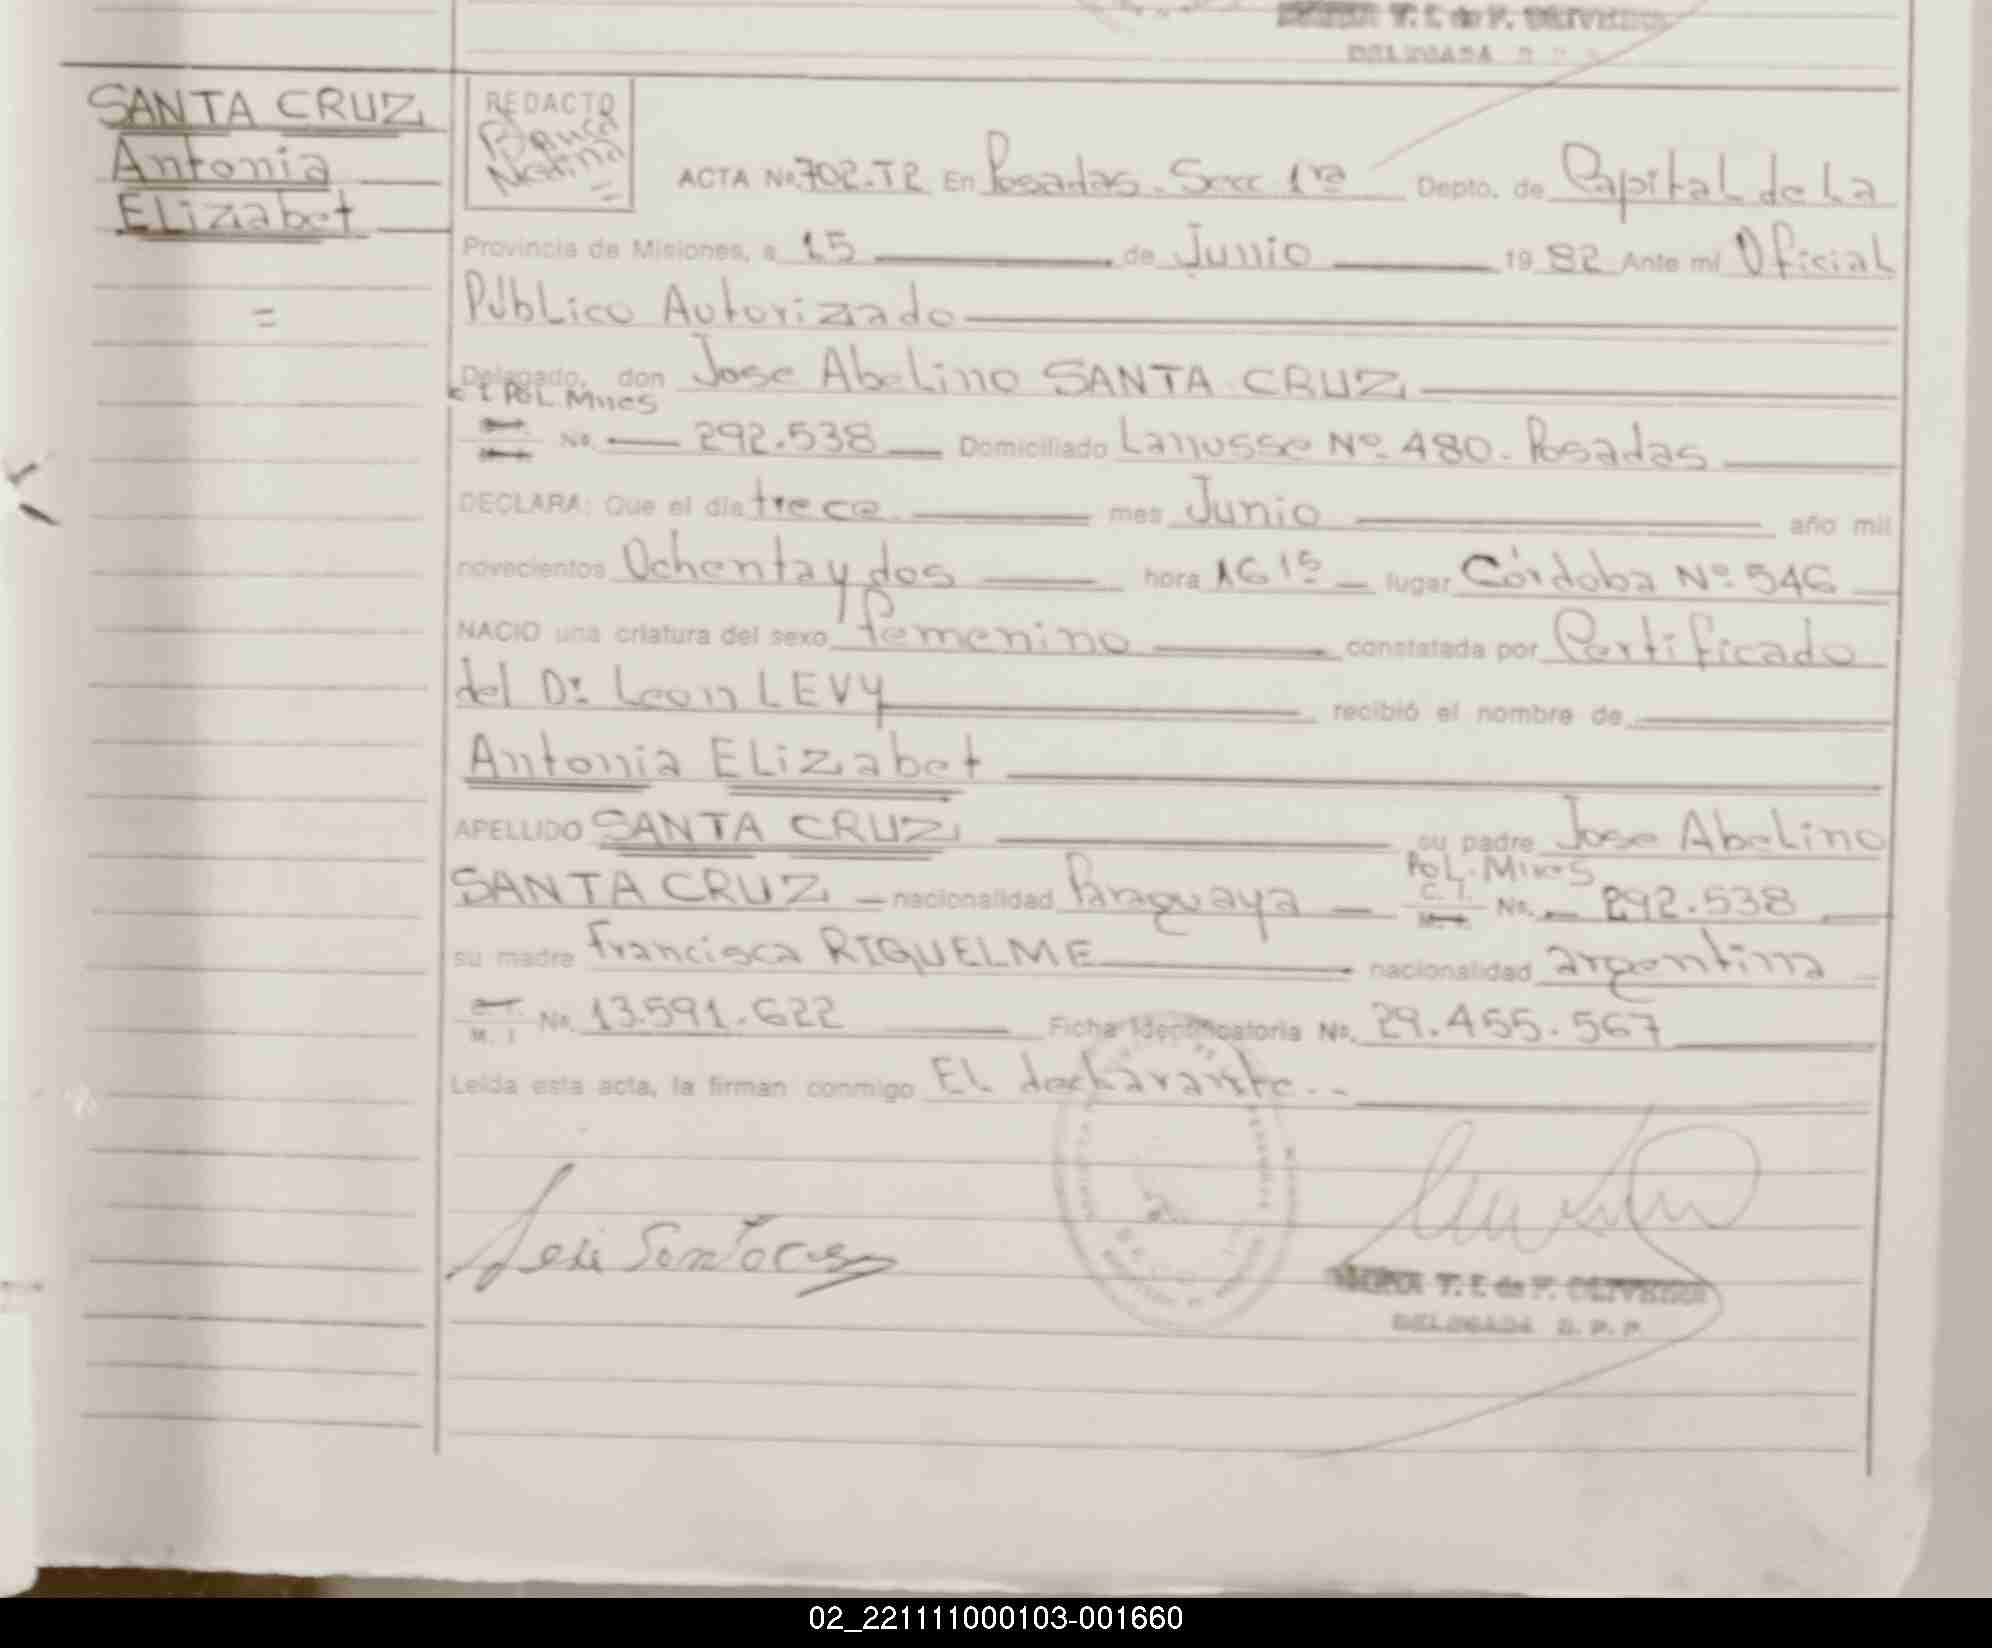 DELEGADA
SANTA CRUZ
Antonia
Elizabet
=
REDACTO
ACTA No. 702.T2 En Posadas. Secc 1ra Depto. de Capital de La
Provincia de Misiones, a 15 de Junio 19 82 Ante mí Oficial
Público Autorizado
Delegado, don Jose Abelino SANTA CRUZ
C I Pol. Mnes
No. 292.538 Domiciliado Lanusse Nº 480. Posadas
DECLARA: Que el día trece mes Junio año mil
novecientos Ochenta y dos hora 16 15 lugar Córdoba Nº 546
NACIO una criatura del sexo femenino constatada por Certificado
del Dr. Leon LEVY recibió el nombre de
Antonia Elizabet
APELLIDO SANTA CRUZ su padre Jose Abelino
Pol. Mnes
SANTA CRUZ nacionalidad Paraguaya C. I. M. I. No. 292.538
su madre Francisca RIQUELME nacionalidad argentina
C. I. M. I No. 13.591.622 Ficha Identificatoria No. 29.455.567
Leída esta acta, la firman conmigo El declarante..-
DELEGADA R. P. P.
02_221111000103-001660